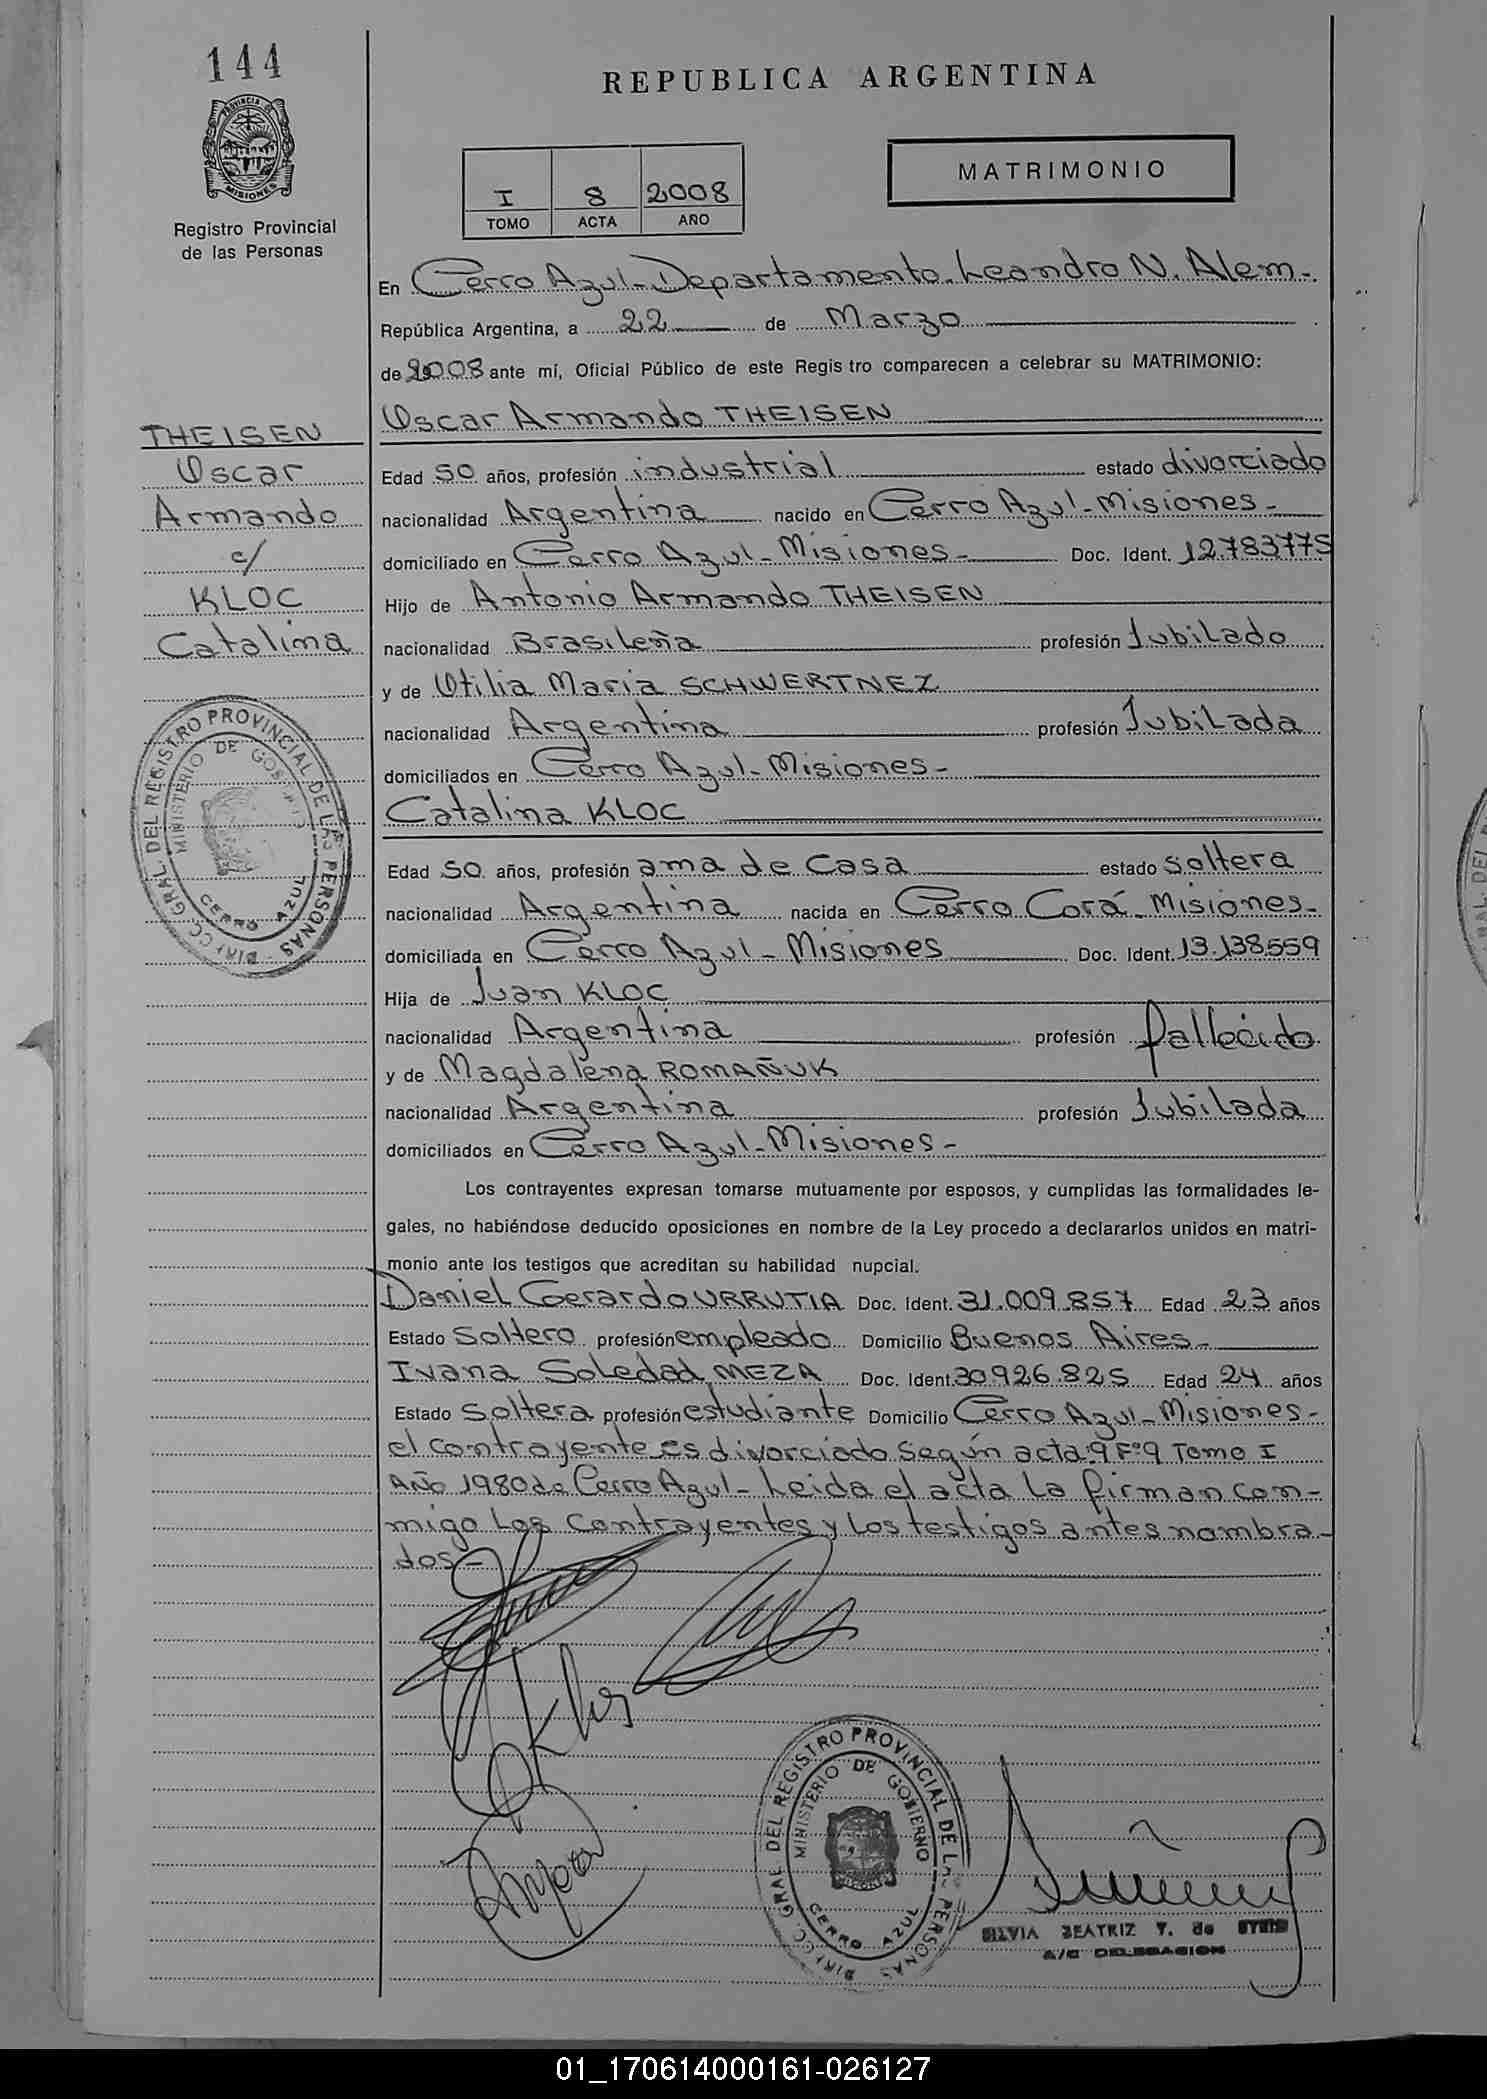 144
REPUBLICA ARGENTINA
PROVINCIA DE
MISIONES
Registro Provincial
de las Personas
MATRIMONIO
I 8 2008
TOMO ACTA AÑO
En Cerro Azul - Departamento Leandro N. Alem -
República Argentina, a 22 de Marzo
de 2008 ante mí, Oficial Público de este Registro comparecen a celebrar su MATRIMONIO:
Oscar Armando THEISEN
THEISEN
Oscar
Armando
c/
KLOC
Catalina
Edad 50 años, profesión industrial estado divorciado
nacionalidad Argentina nacido en Cerro Azul - Misiones -
domiciliado en Cerro Azul - Misiones - Doc. Ident. 12.783775
Hijo de Antonio Armando THEISEN
nacionalidad Brasileña profesión Jubilado
y de Otilia Maria SCHWERTNEZ
nacionalidad Argentina profesión Jubilada
domiciliados en Cerro Azul - Misiones -
DIRECC. GRAL. DEL REGISTRO PROVINCIAL DE LAS PERSONAS
MINISTERIO DE GOBIERNO
CERRO AZUL
Catalina KLOC
Edad 50 años, profesión ama de casa estado soltera
nacionalidad Argentina nacida en Cerro Corá - Misiones -
domiciliada en Cerro Azul - Misiones Doc. Ident. 13.138.559
Hija de Juan KLOC
nacionalidad Argentina profesión fallecido
y de Magdalena ROMAÑUK
nacionalidad Argentina profesión Jubilada
domiciliados en Cerro Azul - Misiones -
Los contrayentes expresan tomarse mutuamente por esposos, y cumplidas las formalidades le-
gales, no habiéndose deducido oposiciones en nombre de la Ley procedo a declararlos unidos en matri-
monio ante los testigos que acreditan su habilidad nupcial.
Daniel Gerardo URRUTIA Doc. Ident. 31.009.857 Edad 23 años
Estado Soltero profesión empleado Domicilio Buenos Aires -
Ivana Soledad MEZA Doc. Ident. 30.926.825 Edad 24 años
Estado Soltera profesión estudiante Domicilio Cerro Azul - Misiones -
el contrayente es divorciado según acta: 9 Fº 9 Tomo I
Año 1980 de Cerro Azul - Leida el acta la firman con-
migo los contrayentes y los testigos antes nombra-
dos -
DIRECC. GRAL. DEL REGISTRO PROVINCIAL DE LAS PERSONAS
MINISTERIO DE GOBIERNO
CERRO AZUL
SILVIA BEATRIZ V. de
A/C DELEGACION
01_170614000161-026127